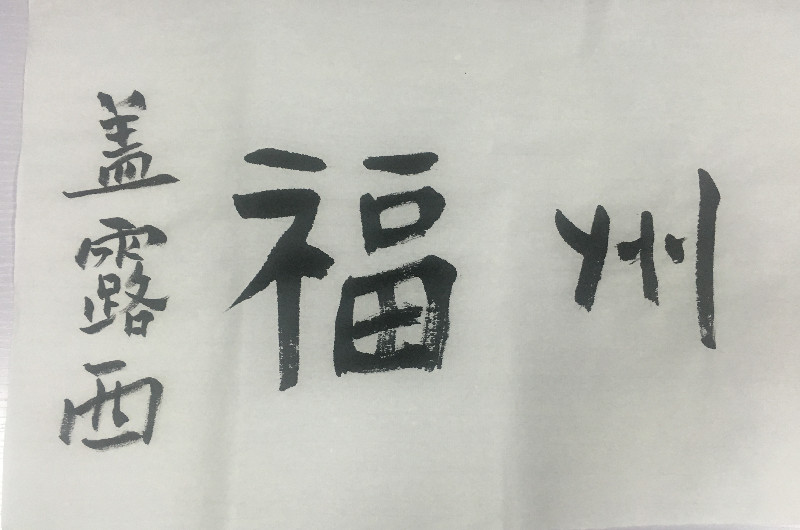 州福
盖露西